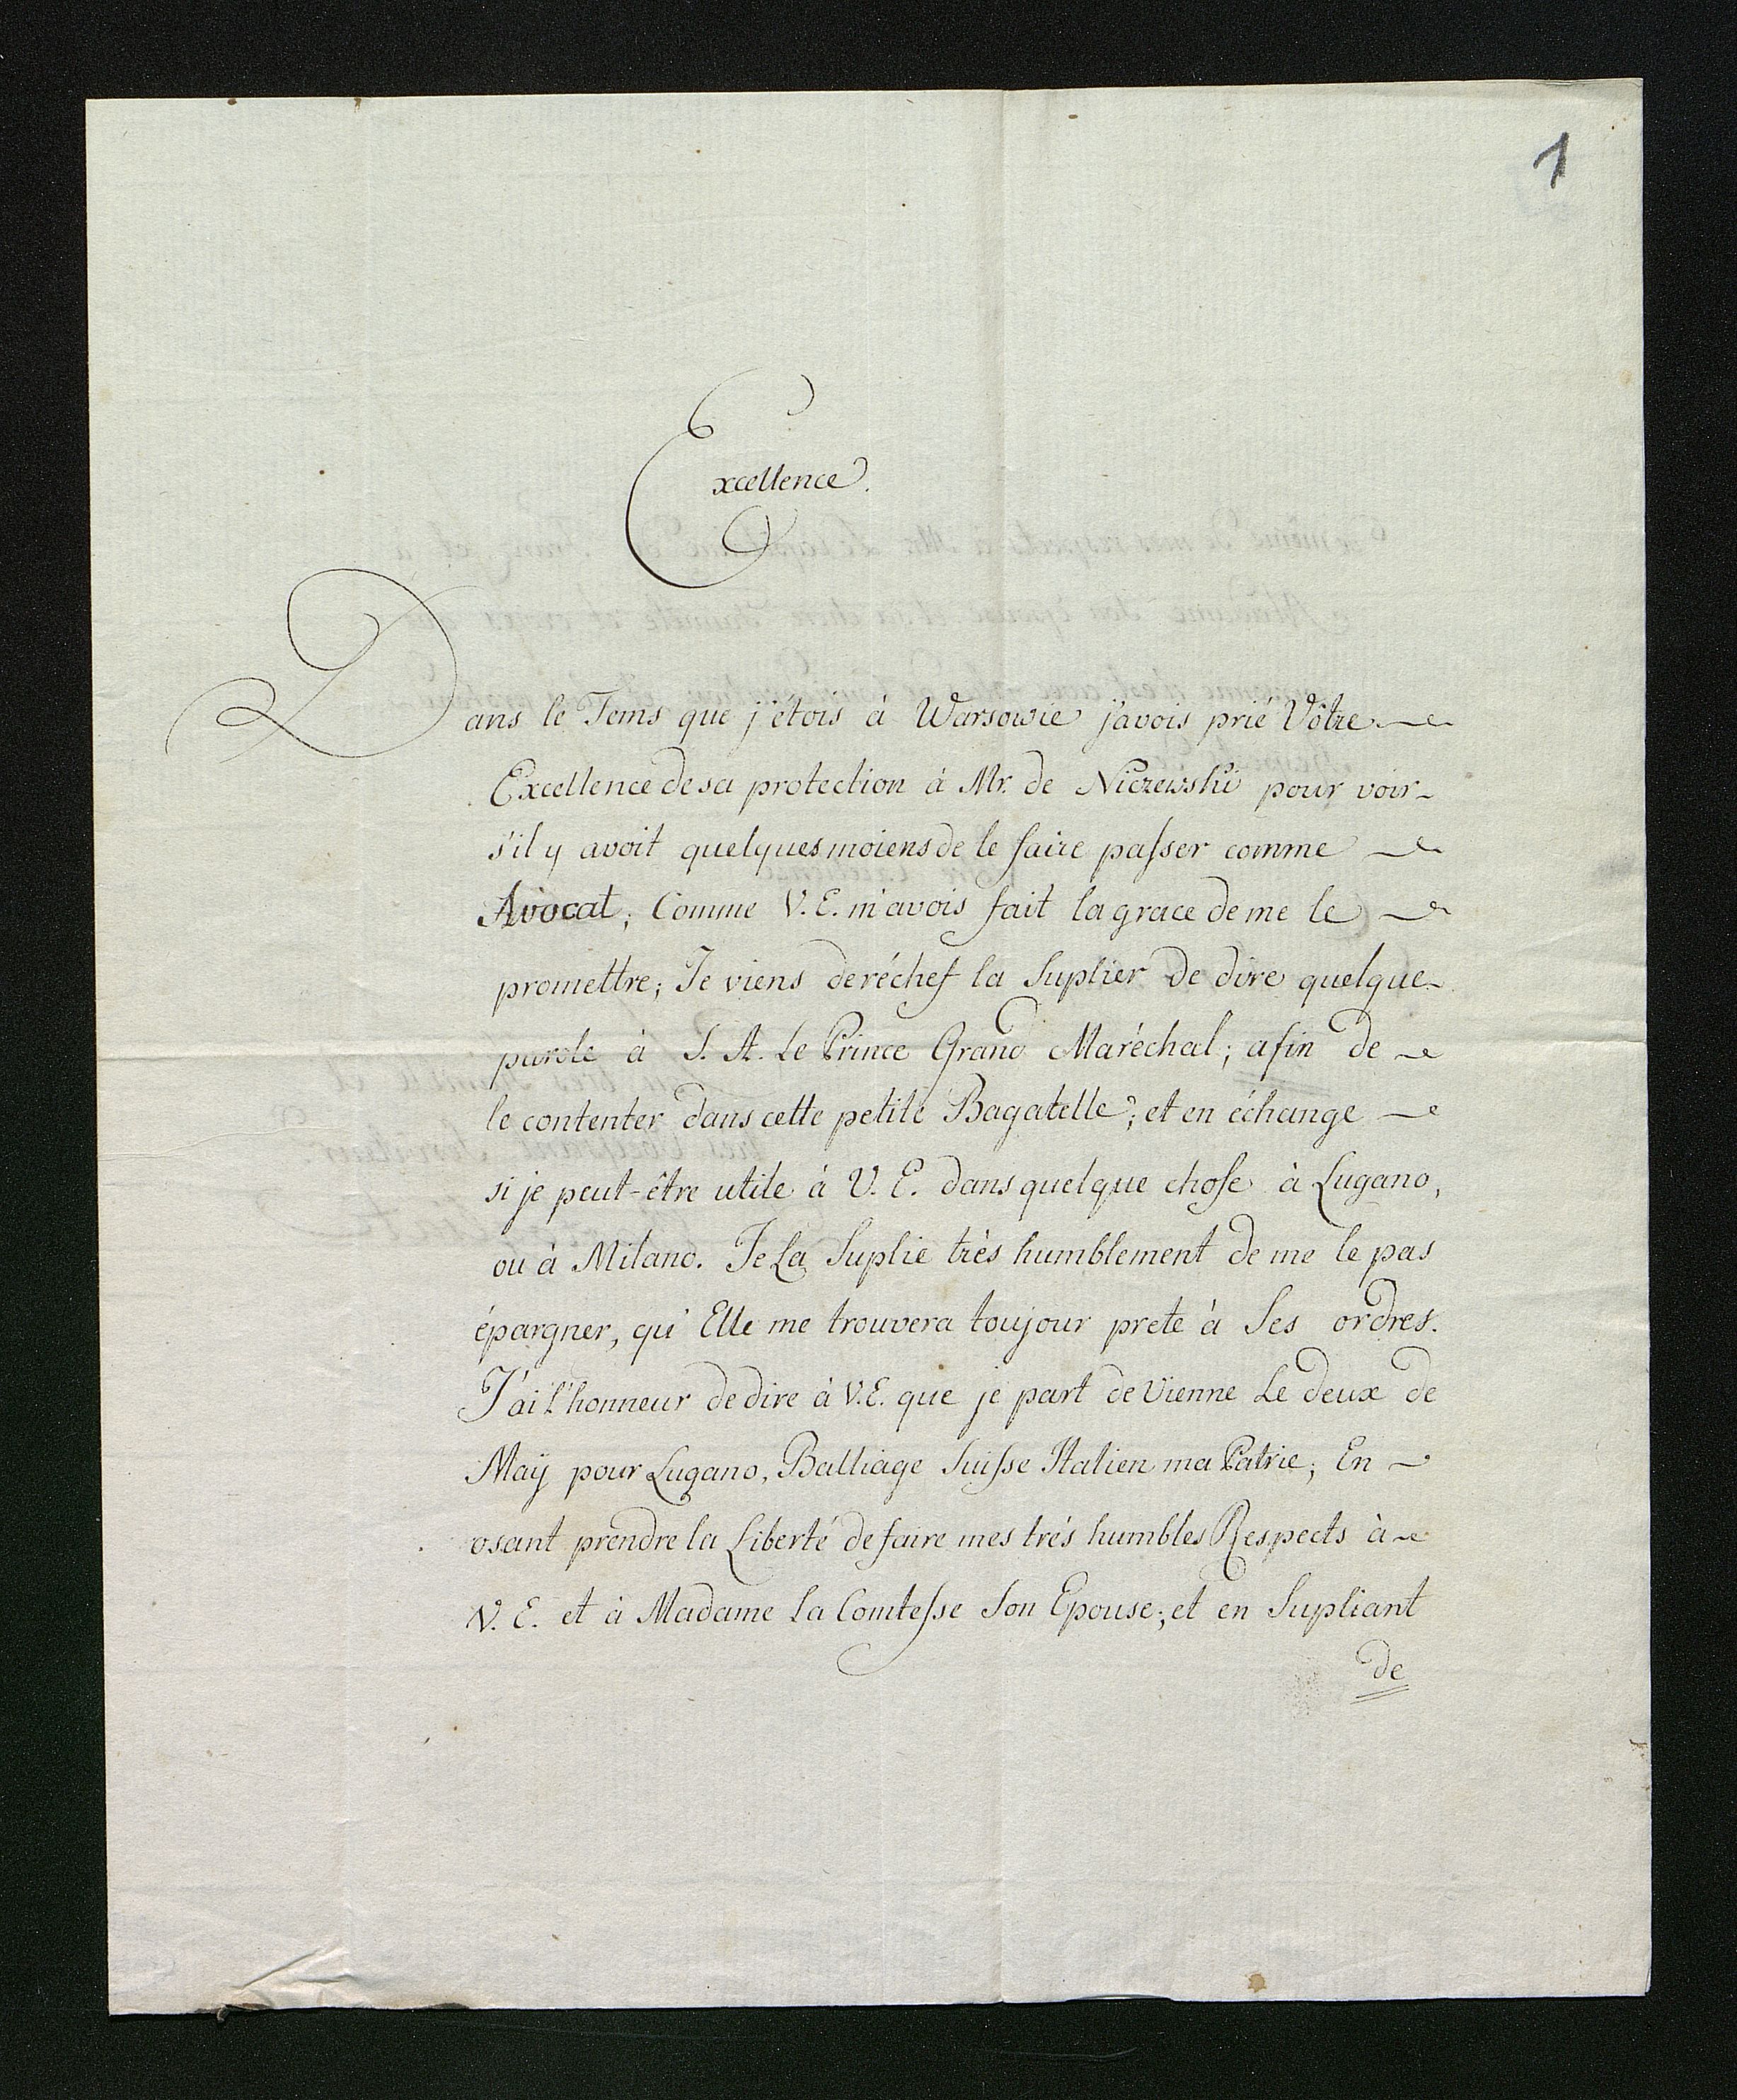 1
Excellence.
Dans le Tems que j'étois à Warsowie j'avois prié Vôtre
Excellence de sa protection à Mr. de Niczewski pour voir
s'il y avoit quelques moiens de le faire passer comme
Avocat; Comme V. E. m'avois fait la grace de me le
promettre; Je viens deréchef la Suplier de dire quelque
parole à S. A. Le Prince Grand Maréchal; afin de
le contenter dans cette petite Bagatelle; et en échange
si je peut-être utile à V. E. dans quelque chose à Lugano,
ou à Milano. Je La Suplie trés humblement de me le pas
épargner, qu'Elle me trouvera toujour prete à Ses ordres.
J'ai l'honneur de dire à V. E. que je part de Vienne Le deux de
Maÿ pour Lugano, Balliage Suisse Italien ma Patrie; En
osant prendre la Liberté de faire mes trés humbles Respects à
V. E. et à Madame La Comtesse Son Epouse; et en Supliant
de